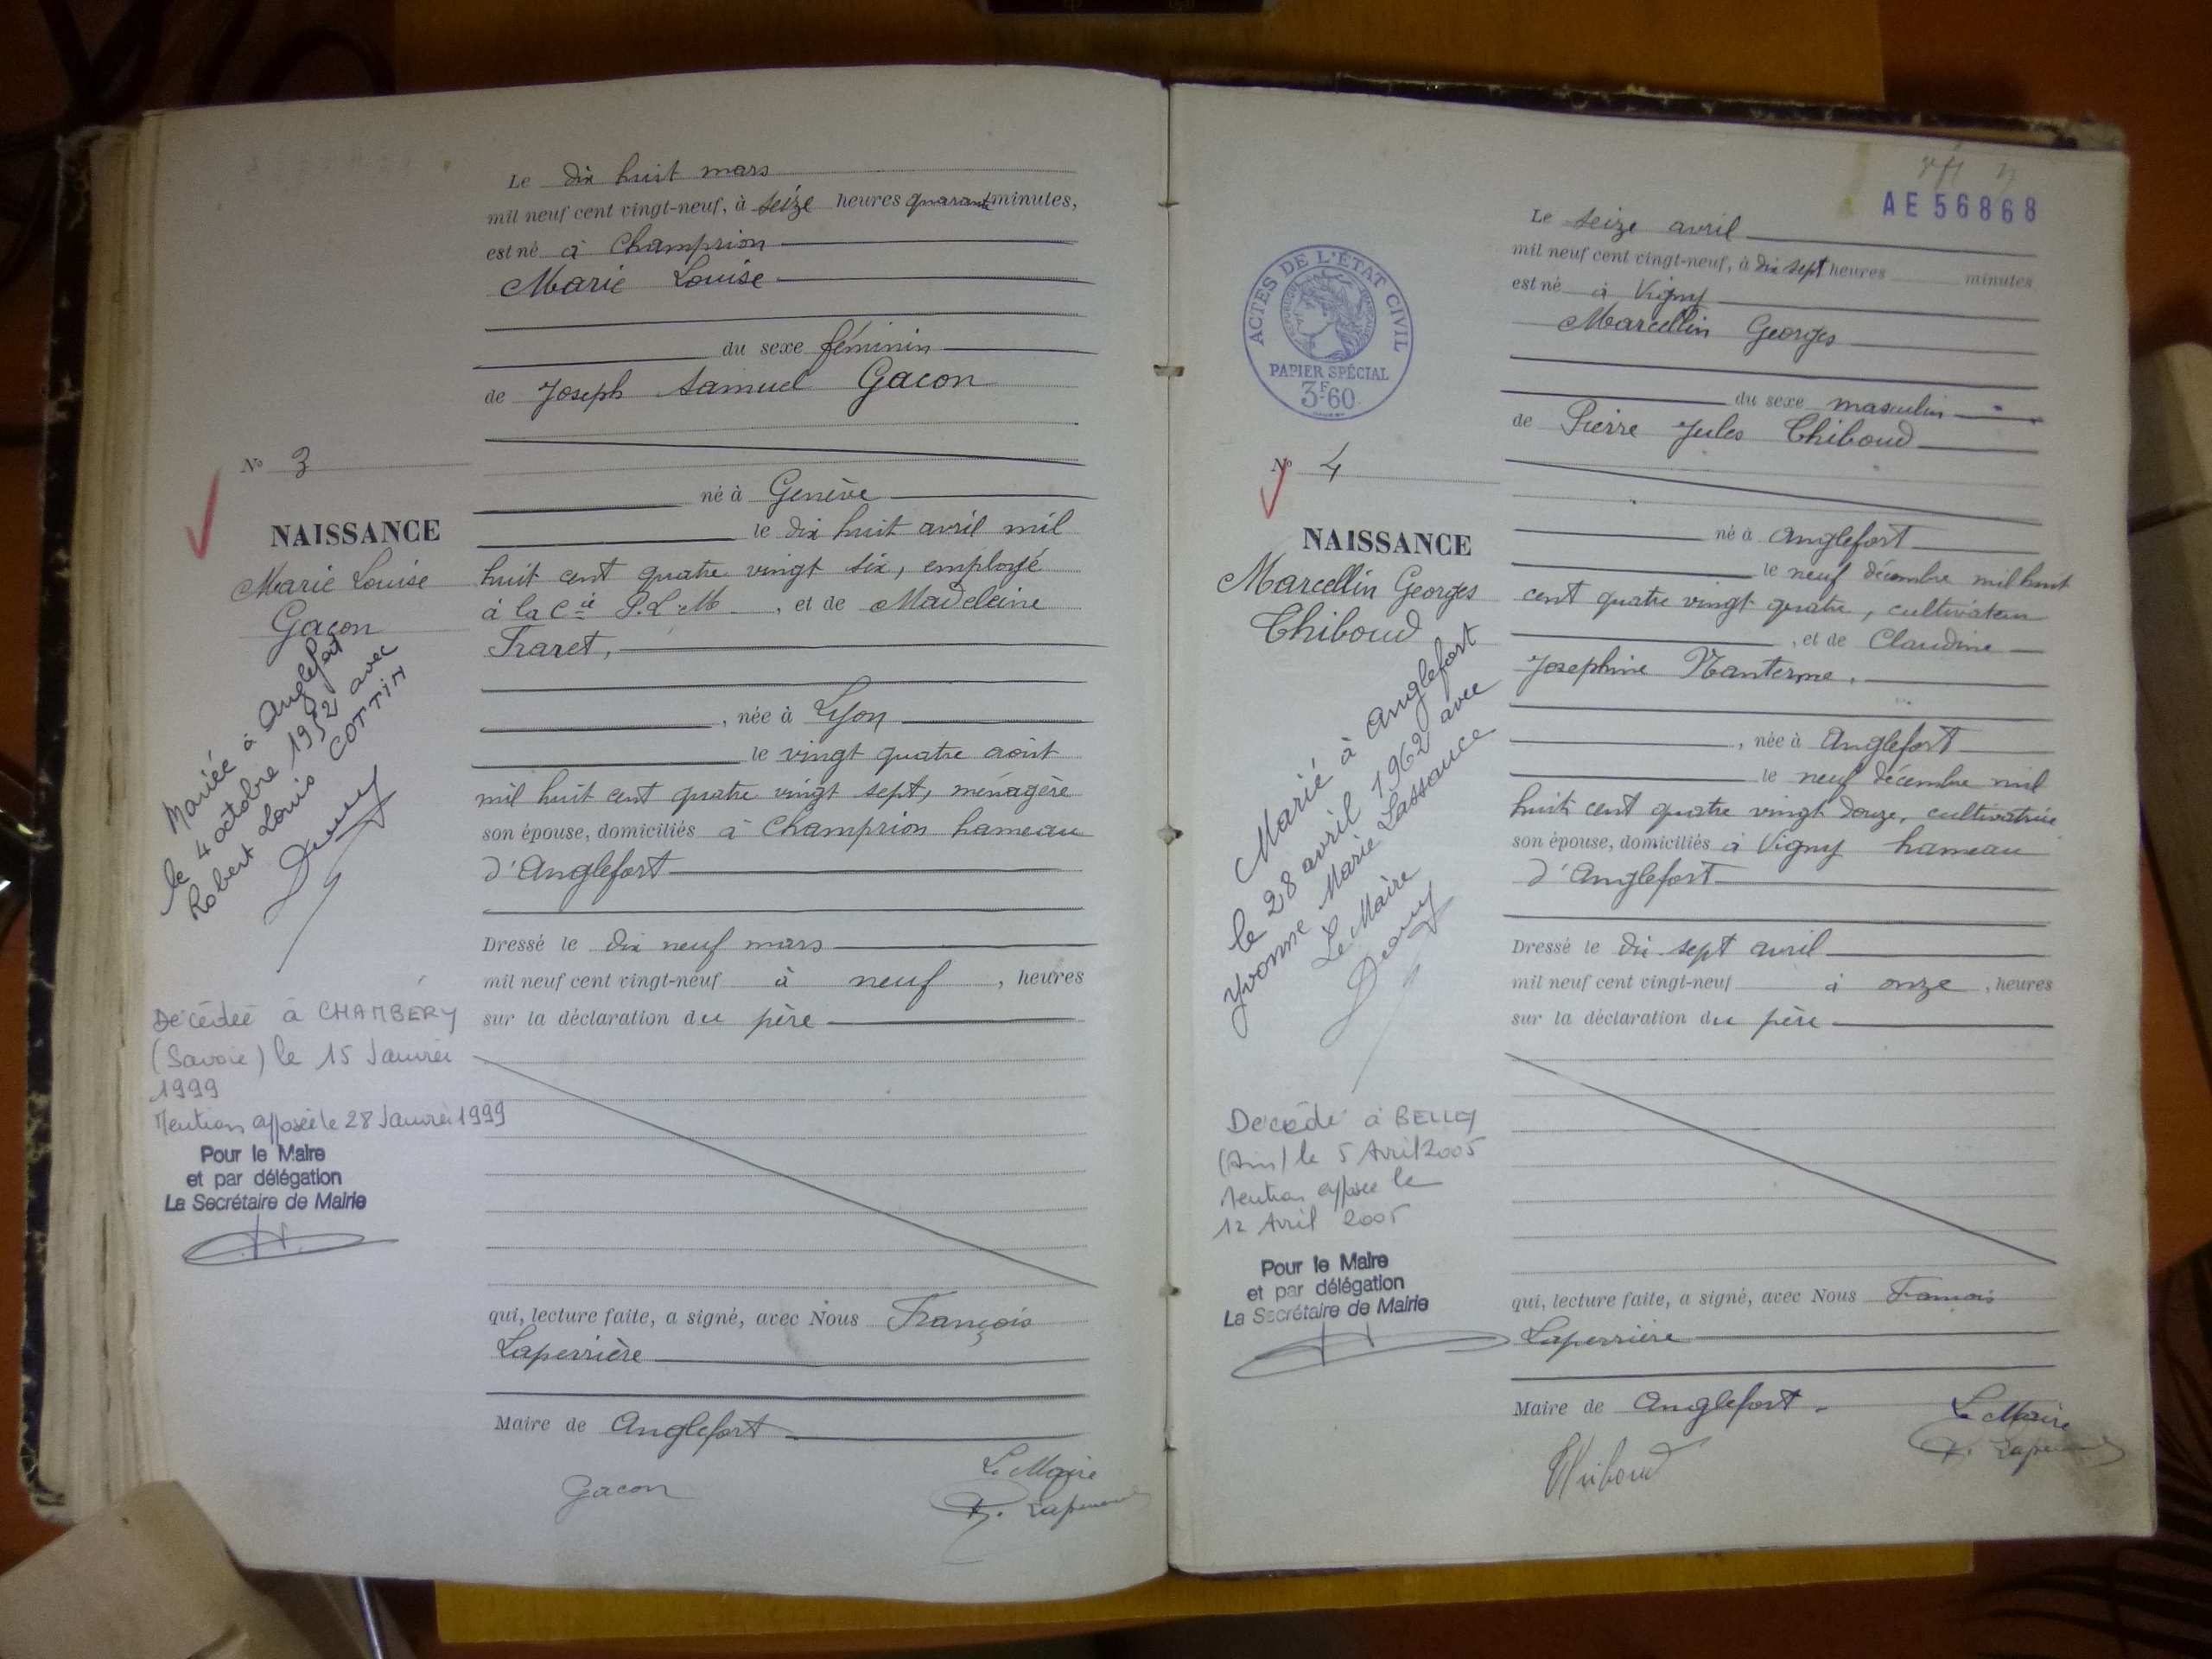 Le dix huit mars
mil neuf cent vingt-neuf, à seize heures quarante minutes,
est né à Champrion
Marie Louise
du sexe féminin
de Joseph Samuel Gacon
né à Genève
le dix huit avril mil
huit cent quatre vingt six, employé
à la Cie P.L.M. , et de Madeleine
Fraret,
, née à Lyon
le vingt quatre août
mil huit cent quatre vingt sept, ménagère
son épouse, domiciliés à Champrion hameau
d'Anglefort
Dressé le dix neuf mars
mil neuf cent vingt-neuf à neuf , heures
sur la déclaration du père
qui, lecture faite, a signé, avec Nous François
Laperrière
Maire de Anglefort
Gacon
Le Maire
F. Laperrière
No 3
NAISSANCE
Marie Louise
Gacon
Mariée à Anglefort
le 4 octobre 1952 avec
Robert Louis COTTIN
Décédée à CHAMBÉRY
(Savoie) le 15 Janvier
1999
Mention apposée le 28 Janvier 1999
Pour le Maire
et par délégation
La Secrétaire de Mairie
AE 56868
Le seize avril
mil neuf cent vingt-neuf, à dix sept heures minutes
est né à Vigny
Marcellin Georges
du sexe masculin
de Pierre Jules Thiboud
né à Anglefort
le neuf décembre mil huit
cent quatre vingt quatre, cultivateur
, et de Claudine
Josephine Nanterme,
, née à Anglefort
le neuf décembre mil
huit cent quatre vingt douze, cultivatrice
son épouse, domiciliés à Vigny hameau
d'Anglefort
Dressé le dix sept avril
mil neuf cent vingt-neuf à onze , heures
sur la déclaration du père
qui, lecture faite, a signé, avec Nous François
Laperrière
Maire de Anglefort
Le Maire
F. Laperrière
Thiboud
ACTES DE L'ÉTAT CIVIL
RÉPUBLIQUE FRANÇAISE
PAPIER SPÉCIAL
3F60
No 4
NAISSANCE
Marcellin Georges
Thiboud
Marié à Anglefort
le 28 avril 1962 avec
Yvonne Marie Lassauce
Le Maire
Décédé à BELLEY
(Ain) le 5 Avril 2005
Mention apposée le
12 Avril 2005
Pour le Maire
et par délégation
La Secrétaire de Mairie